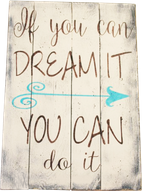 If you can
DREAM IT
YOU CAN
do it